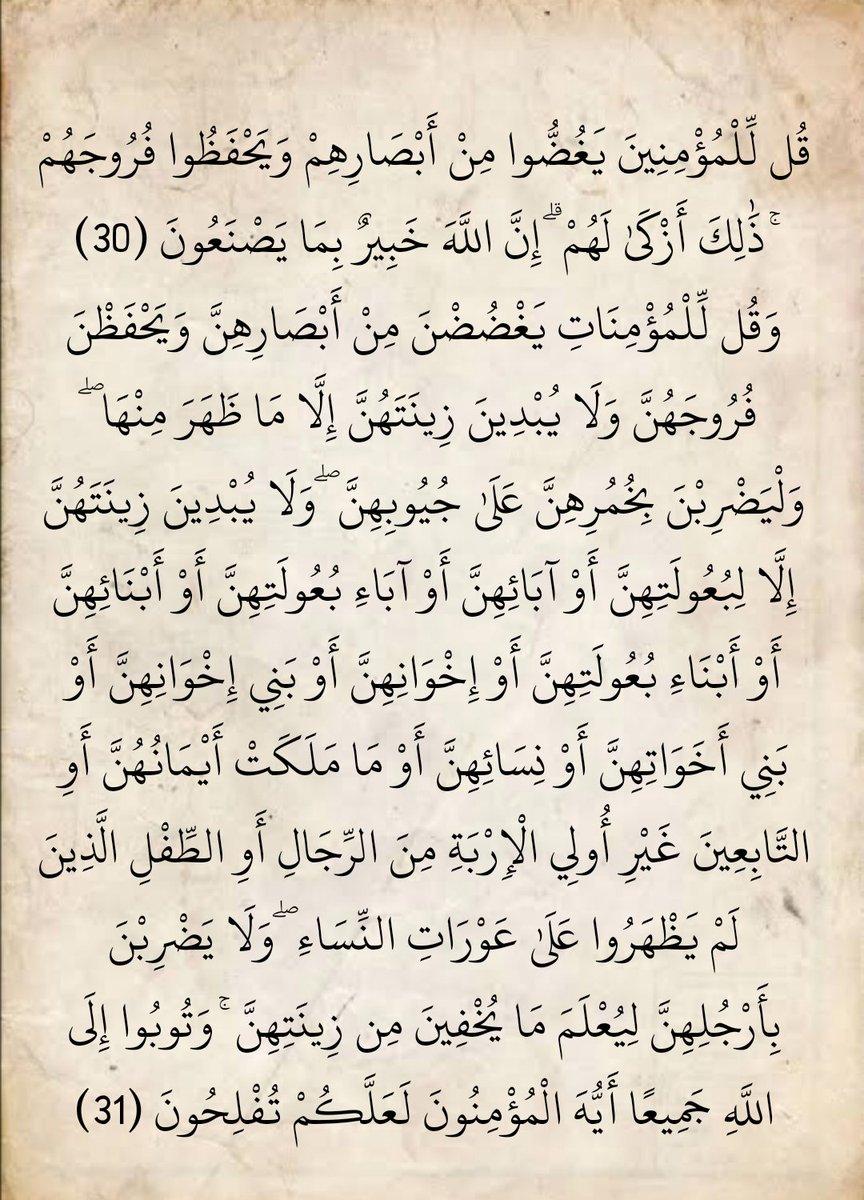 قُل لِّلْمُؤْمِنِينَ يَغُضُّوا مِنْ أَبْصَارِهِمْ وَيَحْفَظُوا فُرُوجَهُمْ
ۚ ذَٰلِكَ أَزْكَىٰ لَهُمْ ۗ إِنَّ اللَّهَ خَبِيرٌ بِمَا يَصْنَعُونَ (30)
وَقُل لِّلْمُؤْمِنَاتِ يَغْضُضْنَ مِنْ أَبْصَارِهِنَّ وَيَحْفَظْنَ
فُرُوجَهُنَّ وَلَا يُبْدِينَ زِينَتَهُنَّ إِلَّا مَا ظَهَرَ مِنْهَا ۖ
وَلْيَضْرِبْنَ بِخُمُرِهِنَّ عَلَىٰ جُيُوبِهِنَّ ۖ وَلَا يُبْدِينَ زِينَتَهُنَّ
إِلَّا لِبُعُولَتِهِنَّ أَوْ آبَائِهِنَّ أَوْ آبَاءِ بُعُولَتِهِنَّ أَوْ أَبْنَائِهِنَّ
أَوْ أَبْنَاءِ بُعُولَتِهِنَّ أَوْ إِخْوَانِهِنَّ أَوْ بَنِي إِخْوَانِهِنَّ أَوْ
بَنِي أَخَوَاتِهِنَّ أَوْ نِسَائِهِنَّ أَوْ مَا مَلَكَتْ أَيْمَانُهُنَّ أَوِ
التَّابِعِينَ غَيْرِ أُولِي الْإِرْبَةِ مِنَ الرِّجَالِ أَوِ الطِّفْلِ الَّذِينَ
لَمْ يَظْهَرُوا عَلَىٰ عَوْرَاتِ النِّسَاءِ ۖ وَلَا يَضْرِبْنَ
بِأَرْجُلِهِنَّ لِيُعْلَمَ مَا يُخْفِينَ مِن زِينَتِهِنَّ ۚ وَتُوبُوا إِلَى
اللَّهِ جَمِيعًا أَيُّهَ الْمُؤْمِنُونَ لَعَلَّكُمْ تُفْلِحُونَ (31)